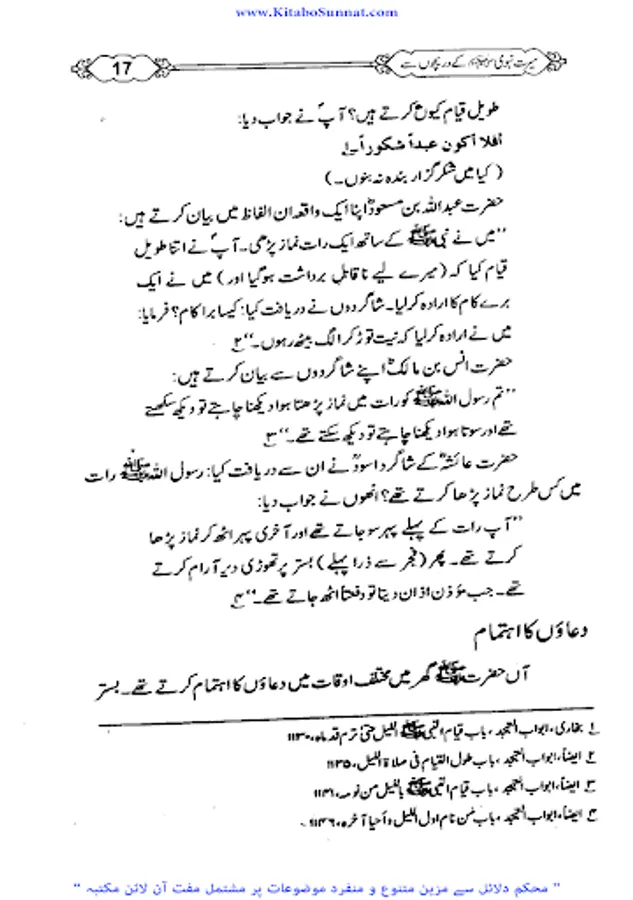 www.KitaboSunnat.com
سیرت نبوی ﷺ کے دریچوں سے
17
طویل قیام کیوں کرتے ہیں؟ آپؐ نے جواب دیا:
أفلا أكون عبداً شكوراً۔۱
(کیا میں شکر گزار بندہ نہ بنوں۔)
حضرت عبداللہ بن مسعودؓ اپنا ایک واقعہ ان الفاظ میں بیان کرتے ہیں:
”میں نے نبی ﷺ کے ساتھ ایک رات نماز پڑھی۔ آپؐ نے اتنا طویل
قیام کیا کہ (میرے لیے ناقابل برداشت ہوگیا اور) میں نے ایک
برے کام کا ارادہ کرلیا۔ شاگردوں نے دریافت کیا: کیسا برا کام؟ فرمایا:
میں نے ارادہ کرلیا کہ نیت توڑ کر الگ بیٹھ رہوں۔“۲
حضرت انس بن مالکؓ اپنے شاگردوں سے بیان کرتے ہیں:
”تم رسول اللہ ﷺ کو رات میں نماز پڑھتا ہوا دیکھنا چاہتے تو دیکھ سکتے
تھے اور سوتا ہوا دیکھنا چاہتے تو دیکھ سکتے تھے۔“۳
حضرت عائشہؓ کے شاگرد اسودؒ نے ان سے دریافت کیا: رسول اللہ ﷺ رات
میں کس طرح نماز پڑھا کرتے تھے؟ انھوں نے جواب دیا:
”آپ رات کے پہلے پہر سو جاتے تھے اور آخری پہر اٹھ کر نماز پڑھا
کرتے تھے۔ پھر (فجر سے ذرا پہلے) بستر پر تھوڑی دیر آرام کرتے
تھے۔ جب مؤذن اذان دیتا تو دفعتاً اٹھ جاتے تھے۔“۴
دعاؤں کا اہتمام
آں حضرت ﷺ گھر میں مختلف اوقات میں دعاؤں کا اہتمام کرتے تھے۔ بستر
۱ بخاری، ابواب التہجد، باب قیام النبی ﷺ اللیل حتیٰ ترم قدماہ، ۱۱۳۰
۲ ایضاً، ابواب التہجد، باب طول القیام فی صلاۃ اللیل، ۱۱۳۵
۳ ایضاً، ابواب التہجد، باب قیام النبی ﷺ باللیل من نومہ، ۱۱۴۱
۴ ایضاً، ابواب التہجد، باب من نام اول اللیل وأحیا آخرہ، ۱۱۴۶۔
" محکم دلائل سے مزین متنوع و منفرد موضوعات پر مشتمل مفت آن لائن مکتبہ "